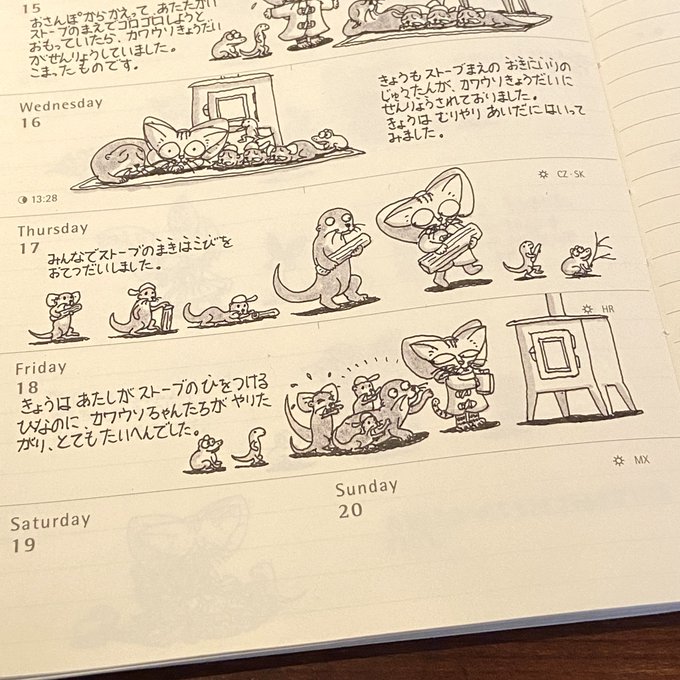 15
おさんぽからかえって、あたたかい
ストーブのまえでゴロゴロしようと
おもっていたら、カワウソきょうだい
がせんりょうしていました。
こまったものです。
Wednesday
16
きょうも ストーブまえの おきにいりの
じゅうたんが、カワウソきょうだいに
せんりょうされておりました。
きょうは むりやり あいだに はいって
みました。
13:28
CZ·SK
Thursday
17
みんなでストーブのまきはこびを
おてつだいしました。
HR
Friday
18
きょうは あたしが ストーブのひをつける
ひなのに、カワウソちゃんたろが やりた
がり、とてもたいへんでした。
MX
Saturday
19
Sunday
20